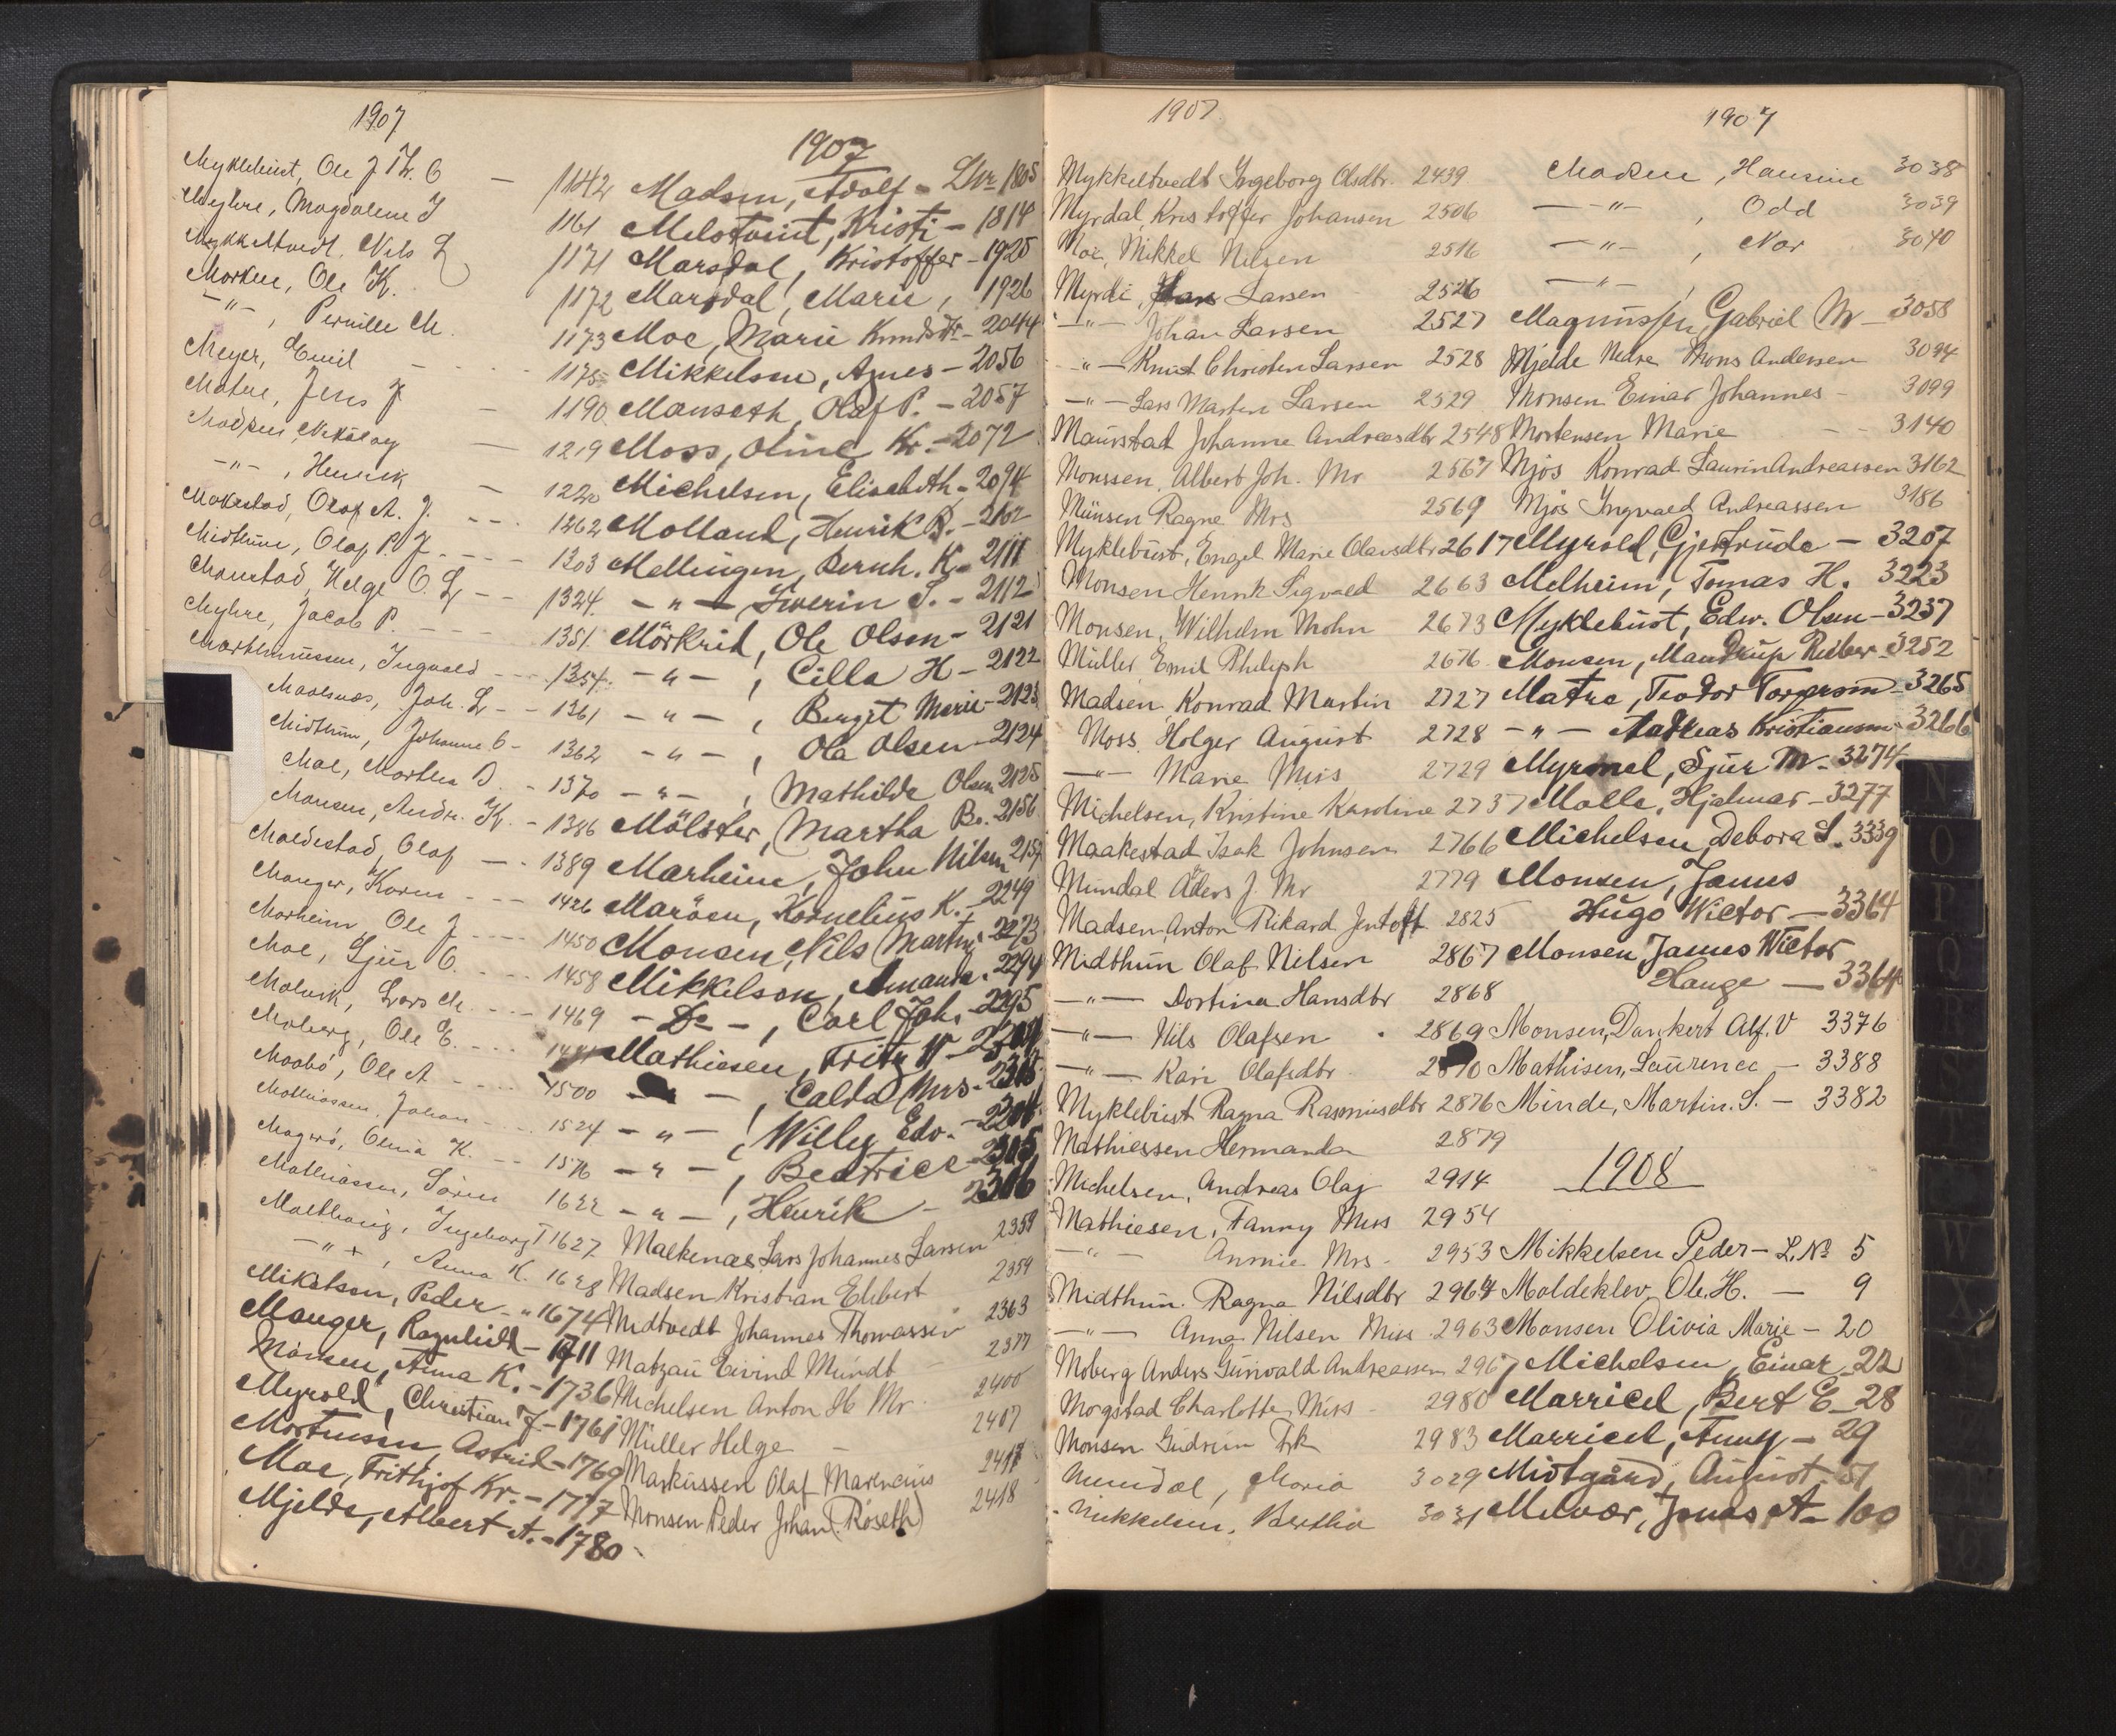 1907
Myklebust, Ole J. 1142
Myhre, Magdalene J 1161
Mykkeltvedt, Nils L 1171
Morken, Ole K. 1172
—"—, Pernille M. 1173
Meyer, Emil 1175
Matre, Jens J 1190
Madsen, Nikolay 1219
—"—, Henrik 1220
Makestad, Olaf A. J. 1262
Midthun, Olaf P. J. 1303
Monstad, Helge O. L 1324
Myhre, Jacob P. 1351
Marthinussen, Ingvald 1354
Maalsnes, Joh. L 1361
Midthun, Johanne O 1362
Moe, Morten D. 1370
Monsen, Andr. K. 1386
Moldestad, Olaf 1389
Manger, Karen 1426
Morheim, Ole J 1450
Moe, Sjur O. 1458
Malvik, Lars M. 1469
Moberg, Ole E.
Moabö, Ole A 1500
Mathiassen, Johan 1524
Magerö, Olina K. 1576
Mathiassen, Sören 1622
Ingeborg T 1627
—"—, Anna K. 1628
Mikalsen, Peder " 1674
Manger, Ragnhild - 1711
Monsen, Anna K. - 1736
Myrold, Christian J - 1761
Mortensen, Astrid - 1769
Moe, Frithjof Kr. - 1777
Mjelde, Albert A. - 1780
1907
Madsen, Adolf - Lnr 1805
Kristi - 1814
Marsdal, Kristoffer - 1925
Marsdal, Marie, 1926
Moe, Marie Knudsdtr - 2044
Mikkelsen, Agnes - 2056
Manseth, Olaf P. - 2057
Moss, Oline Kr. - 2072
Michelsen, Elisabeth - 2094
Molland, Henrik B. - 2102
Mellingen, Bernh. K - 2111
— " — Severin S. - 2112
Mörkrid, Ole Olsen - 2121
— " —, Cilla H - 2122
— " —, Berget Marie - 2123
— " —, Ole Olsen - 2124
— " —, Mathilde Olsen 2125
Mölster, Martha Br. 2156
Marheim, John Nilsen 2157
Marösen, Kornelius K. - 2249
Monsen, Nils Martin - 2273
Mikkelson, Amanda - 2294
— Do —, Carl Joh. - 2295
Mathiesen, Fritz W -
— " —, Calda Mrs -
— " —, Willy Edv. -
— " —, Beatrice - 2305
— " —, Henrik - 2306
Malkenes Lars Johannes Larsen 2358
Madsen Kristian Ehbert 2359
Midtvedt Johannes Thomassen 2363
Matzau Eivind Mundt 2377
Michelsen Anton H Mr. 2400
Müller Helge 2407
Markussen Olaf Mareneus 2417
Monsen Peder Johan (Röseth) 2418
1907
Mykkeltvedt Ingeborg Olsdtr. 2439
Myrdal, Kristoffer Johansen 2506
Moe, Mikkel Nilsen 2516
Myrdi, Larsen 2526
—"— Johan Larsen 2527
—"— Knut Christen Larsen 2528
—"— Lars Marten Larsen 2529
Maurstad Johanne Andreasdtr 2548
Monssen, Albert Joh. Mr 2567
Münsen Ragne Mrs 2569
Myklebust, Engel Marie Olavsdtr 2617
Monsen Henrik Sigvald 2663
Monsen, Wilhelm Mohn 2673
Müller Emil Philiph 2676
Madsen Konrad Martin 2727
Moss, Holger August 2728
—"— Marie Miss 2729
Michelsen, Kristine Karoline 2737
Maakestad Isak Johnsen 2766
Mundal Aders J. Mr 2779
Madsen, Anton Rikard Jentoft 2825
Midthun Olaf Nilsen 2867
—"— Dortina Hansdtr 2868
—"— Nils Olafsen 2869
—"— Kari Olafsdtr 2870
Myklebust Ragna Rasmusdtr 2876
Mathiessen Hermanda 2879
Michelsen, Andreas Olay 2914
Mathiesen, Fanny Miss 2954
—"— Annie Mrs. 2953
Midthun Ragna Nilsdtr 2964
—"— Anna Nilsen Miss 2963
Moberg Anders Gunvald Andreassen 2967
Mogstad Charlotte, Miss 2980
Monsen Gudrun Frk 2983
Mundal, Maria 3029
Mikkelsen, Bertha 3031
1907
Madsen, Hansine 3038
—"—, Odd 3039
—"—, Nor 3040
—"—,
Magnussen, Gabriel M - 3058
Mjelde Nedre Mons Andersen 3094
Monsen Einar Johannes - 3099
Mortensen Marie - - 3140
Mjös Konrad Laurin Andreassen 3162
Mjös Ingvald Andreassen 3186
Myrold, Gjertrude - 3207
Melheim, Tomas H. 3223
Myklebust, Edw. Olsen - 3237
Monsen, Mandrup Rieber - 3252
Matre, Teodor Torgersen - 3265
— " — Andreas Kristiansen - 3266
Myrmel, Sjur M. - 3274
Molle, Hjalmar - 3277
Michelsen, Debora S. 3339
Monsen, James
Hugo Wictor — 3364
Monsen James Wictor
Hauge — 3364
Monsen, Dankert Alf. V 3376
Mathisen, Laurence - 3388
Minde, Martin. S. - 3382
1908
Mikkelsen Peder - L.No 5
Moldeklev, Ole. H. — 9
Monsen Olivia Marie - 20
Michelsen, Einar 22
Marricel, Bert E - 28
Marricel, Anny - 29
Midtgård, August 51
Melvær, Jonas A - 100
N
O
P
Q
R
S
T
U
W
X